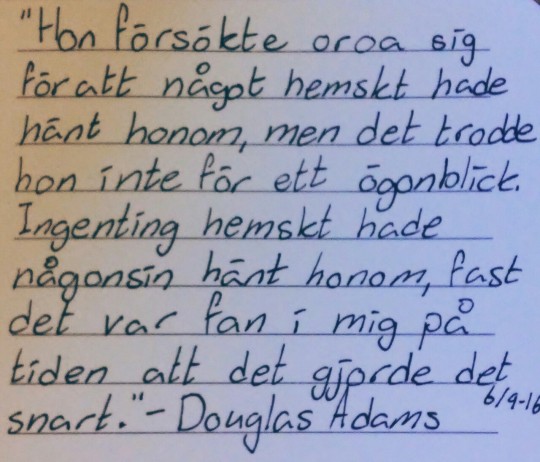 "Hon försökte oroa sig
för att något hemskt hade
hänt honom, men det trodde
hon inte för ett ögonblick.
Ingenting hemskt hade
någonsin hänt honom, fast
det var fan i mig på
tiden att det gjorde det
snart." - Douglas Adams
6/9-16